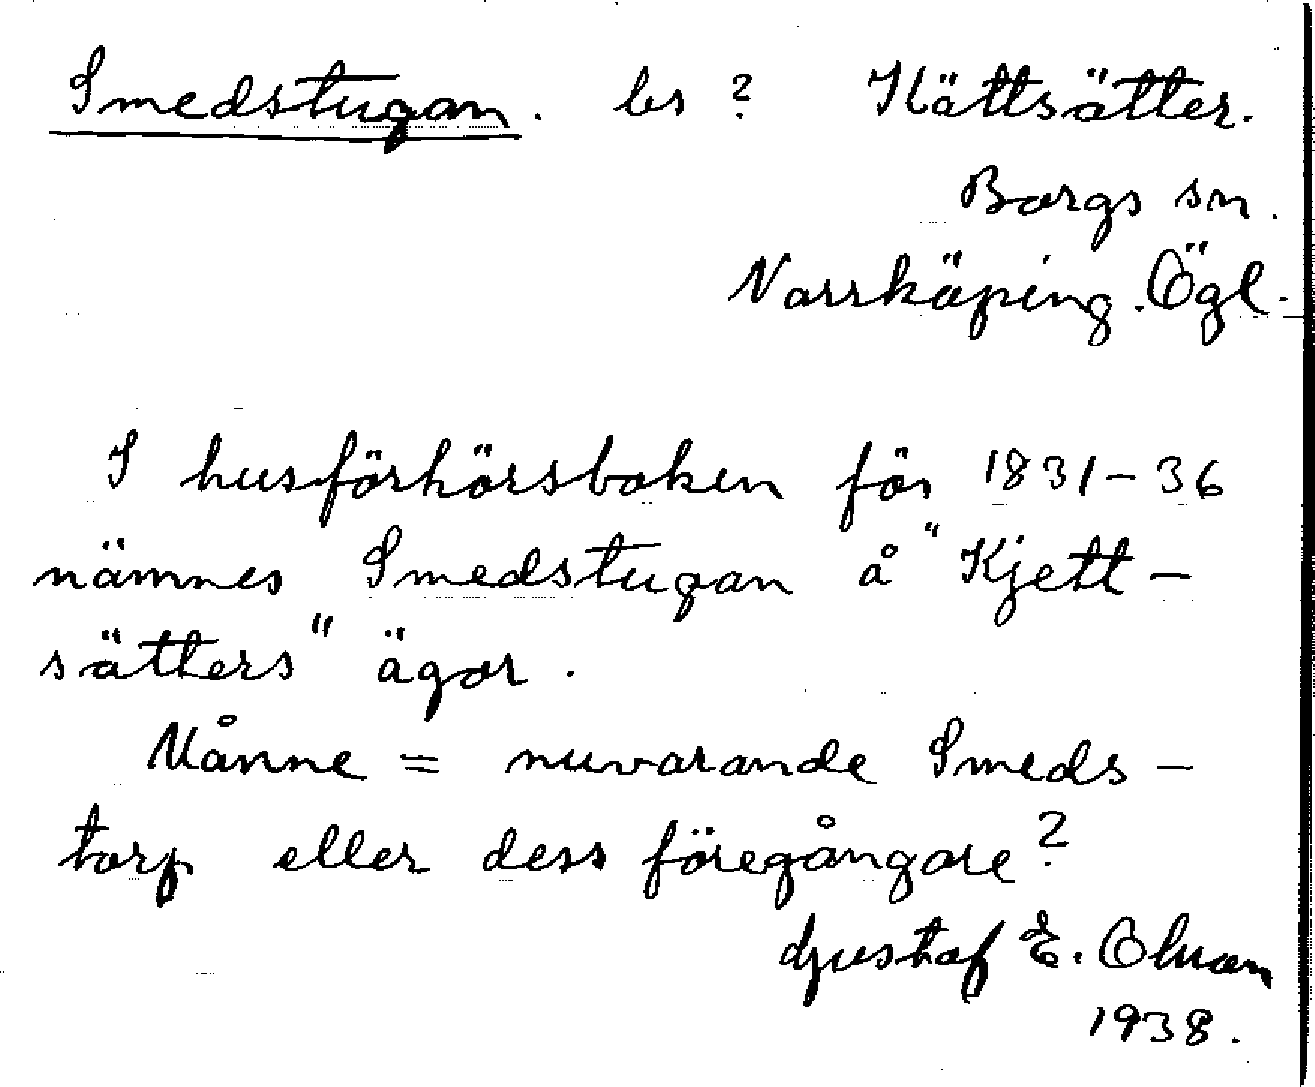 Smedstugan. bs ? Kättsätter.
Borgs sn.
Norrköping. Ögl.
I husförhörsboken för 1831-36
nämnes Smedstugan å "Kjett-
sätters" ägor.
Månne = nuvarande Smeds-
torp eller dess föregångare ?
Gustaf E. Olsson
1938.